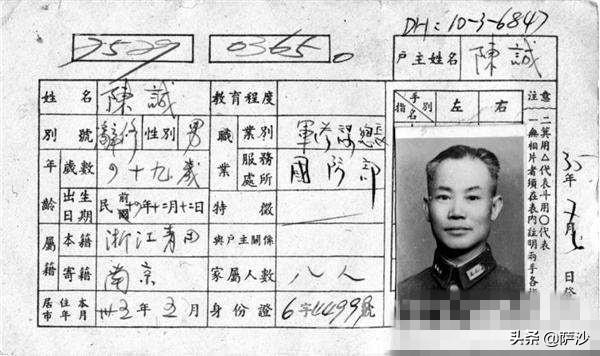 DH: 10-3-6847
7529 0365
戶主姓名 陳誠
姓名 陳誠 教育程度
別號 辭修 性別 男 職業 業別 軍
年齡 歲數 四十九歲 服務處所 國防部
出生日期 民前 年十二月十二日 特徵
屬籍 本籍 浙江青田 與戶主關係
寄籍 南京 家屬人數 八人
居住本市年月 卅五年五月 身份證 6字4499號
手別 指名 左 右
注意
一無相片者須在表內註明兩手各指
二箕用△代表斗用○代表
35年 月 日
头条 @萨沙